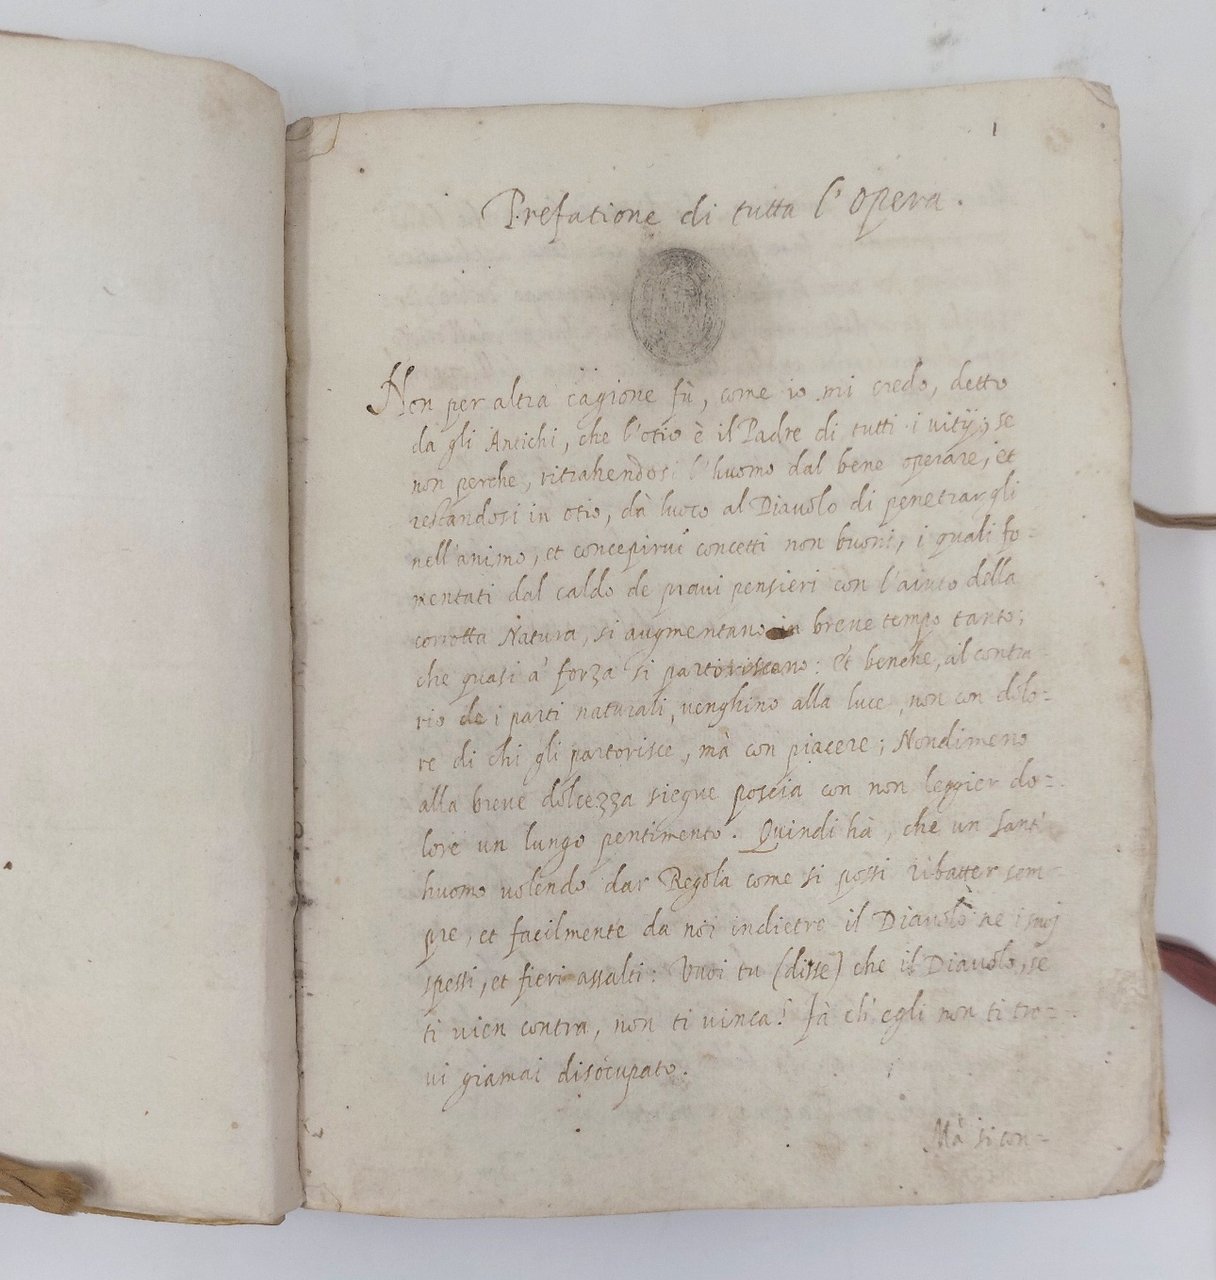 1
Prefatione di tutta l'opera.
Non per altra cagione fù, come io mi credo, detto
da gli Antichi, che l'otio è il Padre di tutti i vitij; se
non perche, ritrahendosi l'huomo dal bene operare, et
restandosi in otio, dà luoco al Diavolo di penetrargli
nell'animo, et concepirui concetti non buoni, i quali fo-
mentati dal caldo de praui pensieri con l'aiuto della
corrotta Natura, si augmentano in breue tempo tanto;
che quasi à forza si partoriscano: et benche, al contra-
rio de i parti naturali, uenghino alla luce, non con dolo-
re di chi gli partorisce, mà con piacere; Nondimeno
alla breue dolcezza siegue poscia con non leggier do-
lore un lungo pentimento. Quindi hà, che un Sant'
huomo uolendo dar Regola come si possi ribatter sem-
pre, et facilmente da noi indietro il Diauolo ne i suoj
spessi, et fieri assalti: Vuoi tu (disse) che il Diauolo, se
ti vien contra, non ti vinca? Fà ch'egli non ti tro-
ui giamai disocupato.
Mà si con-